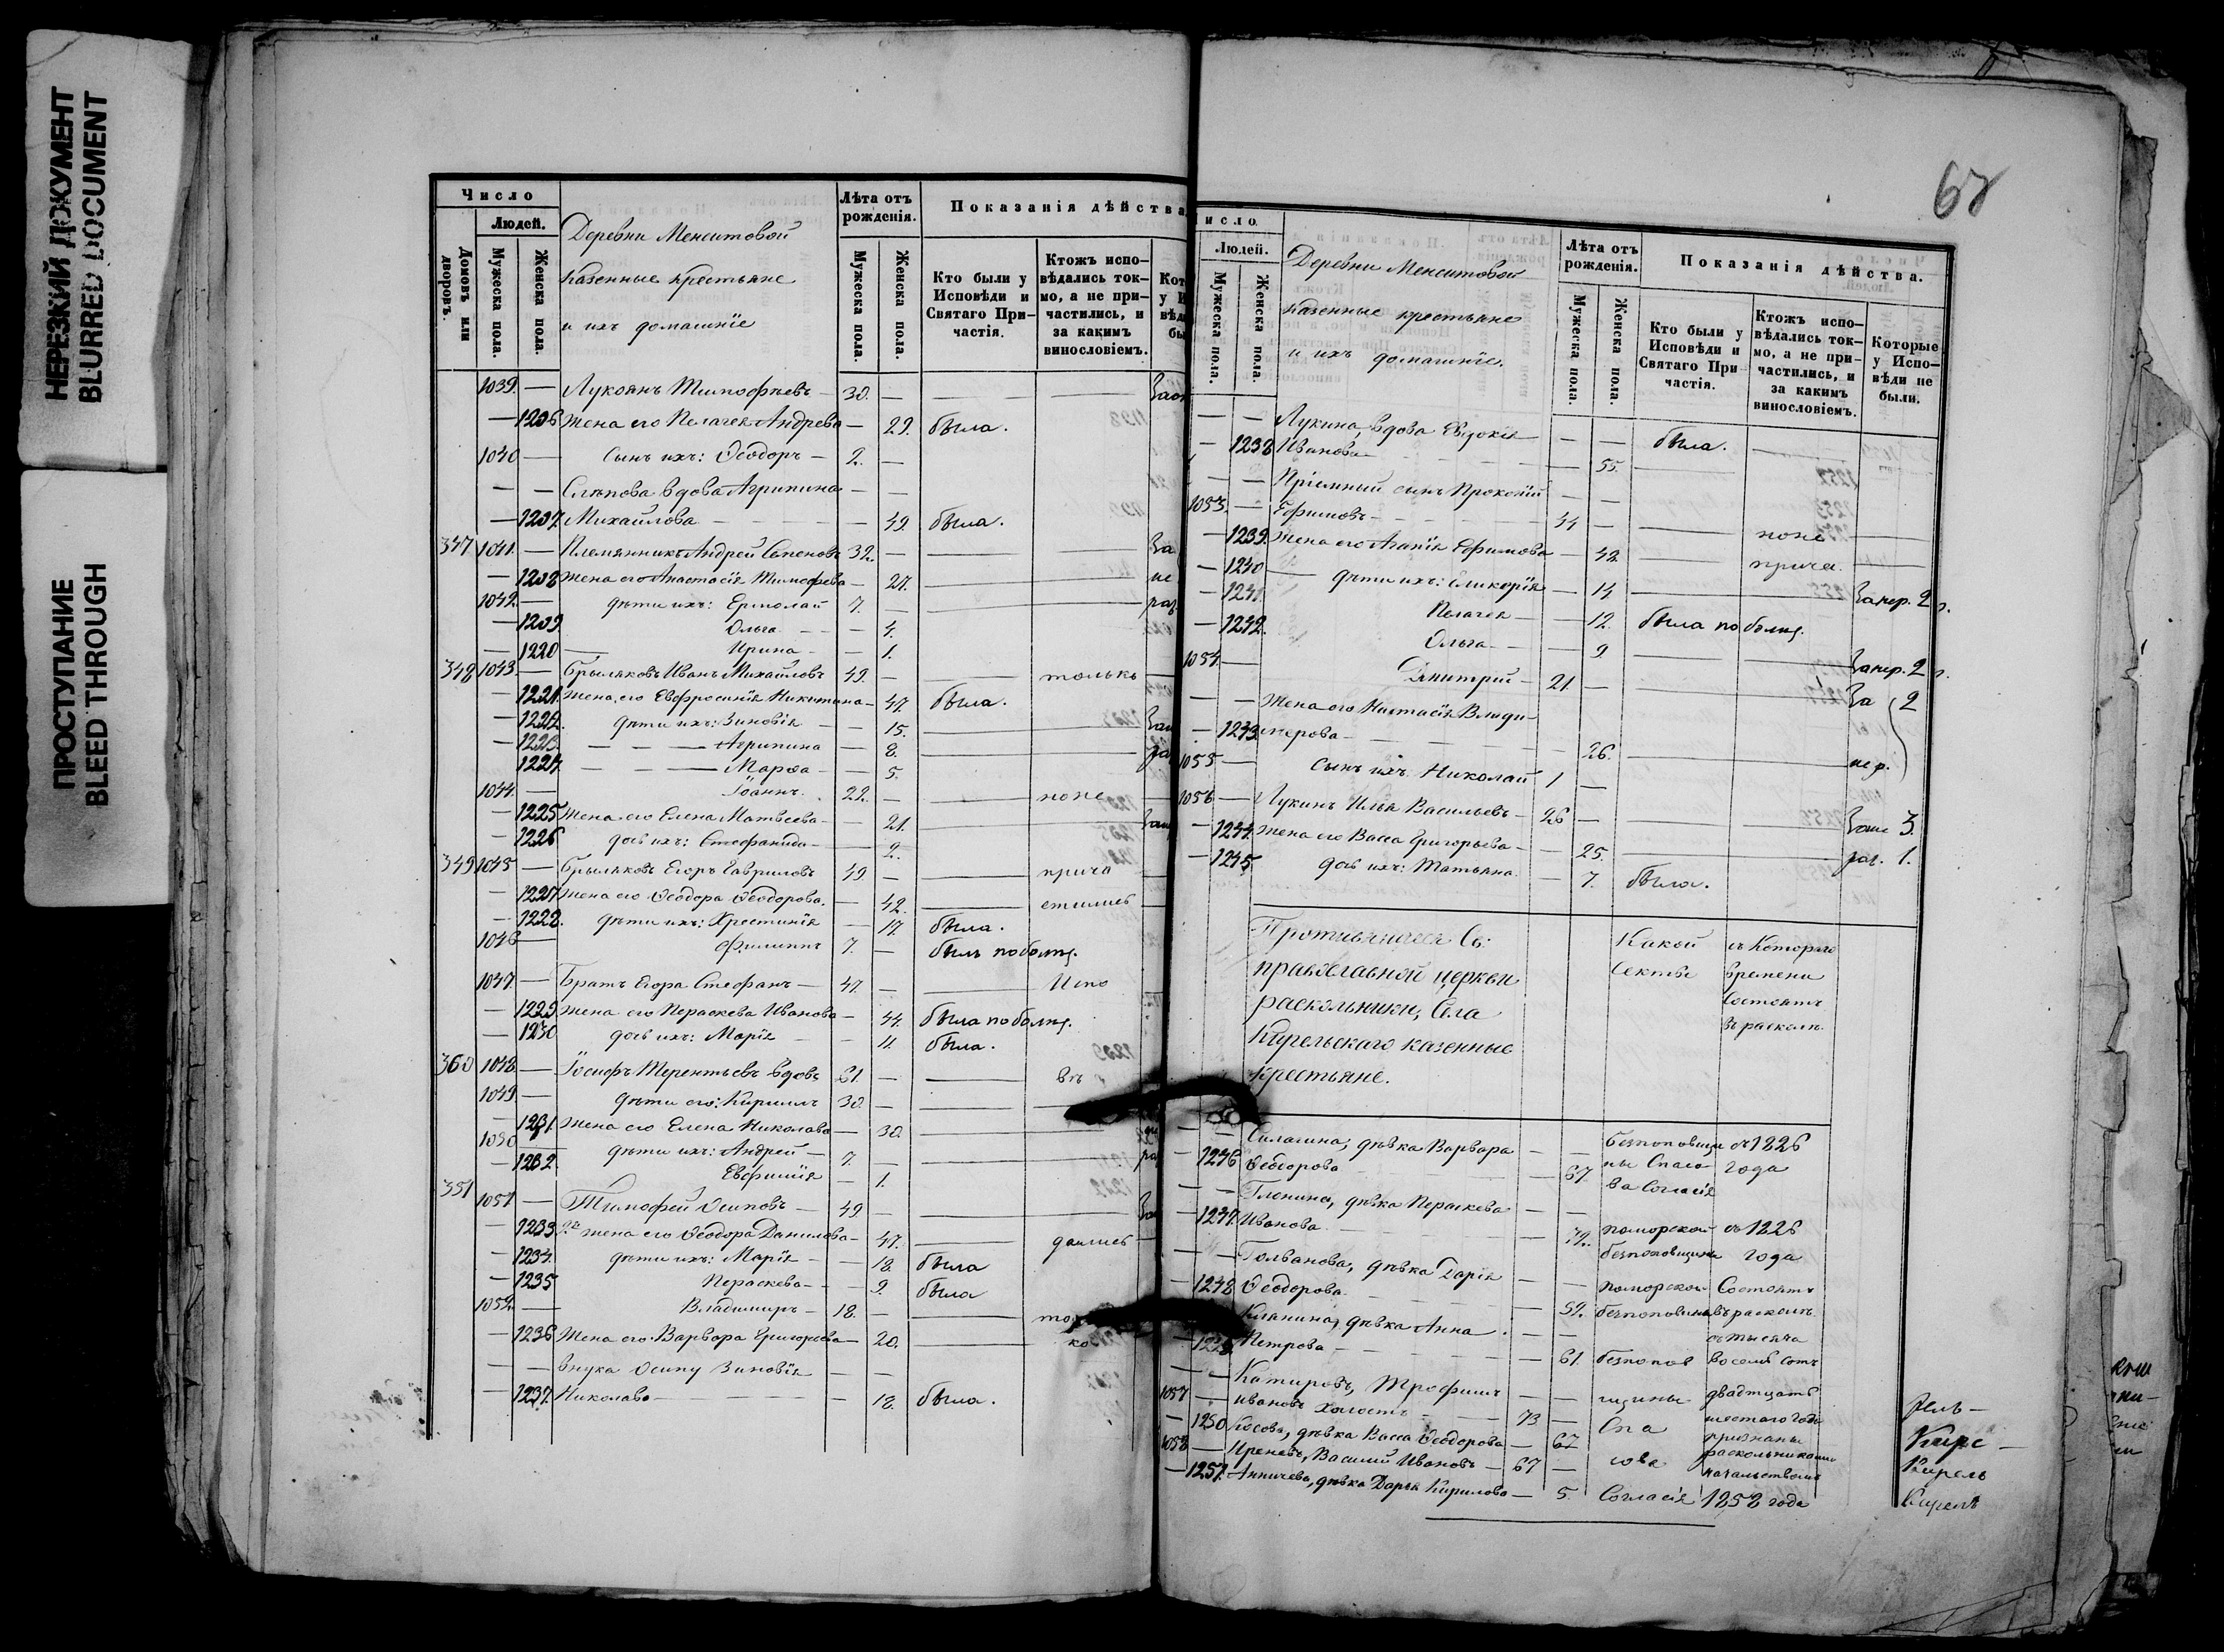 НЕРЕЗКИЙ ДОКУМЕНТ
BLURRED DOCUMENT
ПРОСТУПАНИЕ
BLEED THROUGH
Число
Людей.
Домовъ или дворовъ.
Мужеска пола.
Женска пола.
Деревни Менситовой
казенные крестьяне
и ихъ домашнiе
Лѣта отъ рожденiя.
Мужеска пола.
Женска пола.
Показанiя дѣйства
Кто были у Исповѣди и Святаго При-частiя.
Ктожъ испо-вѣдались ток-мо, а не при-частились, и за какимъ винословiемъ.
1039. — Лукоянъ Тимофѣевъ — 30. —
— 1206 жена его Пелагея Андрева — 29. была.
1040 — сынъ ихъ: Ѳеодоръ — 2. —
— — Слѣпова вдова Агрипина — —
— 1207. Михайлова — 49. была.
347 1041. — Племянникъ Андрей Семеновъ 32. —
— 1208 жена его Анастасiя Тимофева — 27.
1042. — дѣти ихъ: Ермолай 7. —
— 1209. Ольга — 4.
— 1220 Ирина — 1.
348 1043. — Брыляковъ Иванъ Михайловъ 49. — только
— 1221. жена его Евфросинiя Никитина — 47. была.
— 1222. дѣти ихъ: Зиновiя — 15.
— 1223. Агрипина — 8.
1224. Марѳа — 5.
1044. — Iоаннъ. 22. — поне
— 1225 жена его Елена Матвеева — 21.
— 1226 дочь ихъ: Стефанида — 2.
349 1045 — Брыляковъ Егоръ Гавриловъ 49 — прича
— 1227. жена его Ѳеодора Ѳеодорова. — 42. стились
— 1228. дѣти ихъ: Хрестинiя — 17. была.
1046 — Филиппъ 7. — былъ поболѣз.
1047 — Братъ Егора Стефанъ — 47. — Испо
— 1229 жена его Пераскева Иванова — 44. была поболѣз.
— 1230 дочь ихъ: Марiя — 11. была.
360 1048. — Iосифъ Терентьевъ вдовъ 61. — вѣ
1049 — дѣти его: Кириллъ 30. —
— 1231. жена его Елена Николава — 30.
1050 — дѣти ихъ: Андрей — 7. —
— 1232 Евфимiя — 1.
351 1051 — Тимофей Осиповъ — 49 —
— 1233 2я жена его Ѳеодора Данилова — 47. дались
— 1234. дѣти ихъ: Марiя — 18. была
— 1235 Пераскева — 9. была
1052. — Владимиръ — 18. —
— 1236 Жена его Варвара Григорьева — 20. ко
— — внука Осипу Зиновiя — —
— 1237. Николава — 18. была.
68
Число
Людей.
Мужеска пола.
Женска пола.
Деревни Менситовой
казенные крестьяне
и ихъ домашнiе.
Лѣта отъ рожденiя.
Мужеска пола.
Женска пола.
Показанiя дѣйства.
Кто были у Исповѣди и Святаго При частiя.
Ктожъ испо-вѣдались ток-мо, а не при-частились, и за какимъ винословiемъ.
Которые у Испо-вѣди не были.
— — Лукина, вдова Евдокiя — — была.
— 1238 Иванова — 55.
— — Прiемный сынъ Прокопiй — —
1053. — Ефимовъ — 44 — поне
— 1239. Жена его Агапiя Ефимова — 48. прича.
— 1240 дѣти ихъ: Гликерiя — 14. Занер. 2 г.
— 1241. Пелагея — 12. была по болѣз.
— 1242. Ольга — 9 Занер. 2 г.
1054. — Димитрiй — 21. — За 2
— — Жена его Настасiя Влади-
— 1243. мерова — 26. нер.
1055 — Сынъ ихъ Николай 1 —
1056 — Лукинъ Илья Васильевъ — 26 — 3.
— 1244. Жена его Васса Григорьева — 25. 1.
— 1245. дочь ихъ: Татьяна — 7. была.
Противящiеся Св:
православной церкви
раскольники, Села
Кирельскаго казенные
крестьяне.
Какой
секты
съ котораго
времени
состоятъ
въ расколѣ
— — дѣвка Варвара — — безпоповщи съ 1826
— 1246 Ѳеодорова — 67. ны Спасо года
ва Согласiя
— — дѣвка Пераскева — —
— 1247. Иванова — 72. поморской съ 1826
безпоповщины года
— — Голванова, дѣвка Дарiя — — поморской Состоятъ
— 1248 Ѳеодорова — 52. безпоповщины въ расколѣ
дѣвка Анна — — съ тысяча
Петрова — 61. безпопов восемь сотъ
— — Трофимъ — — щины двадцать
1057 — Ивановъ холостъ — 73 — шестаго года
— 1250 Косова, дѣвка Васса Ѳеодорова — 67 Спа признаны
1058 — Василий Ивановъ — 67 — сова раскольниками
— 1251. дѣвка Дарья Кирилова — 5 Согласiя 1858 года
начальствомъ
Кирель